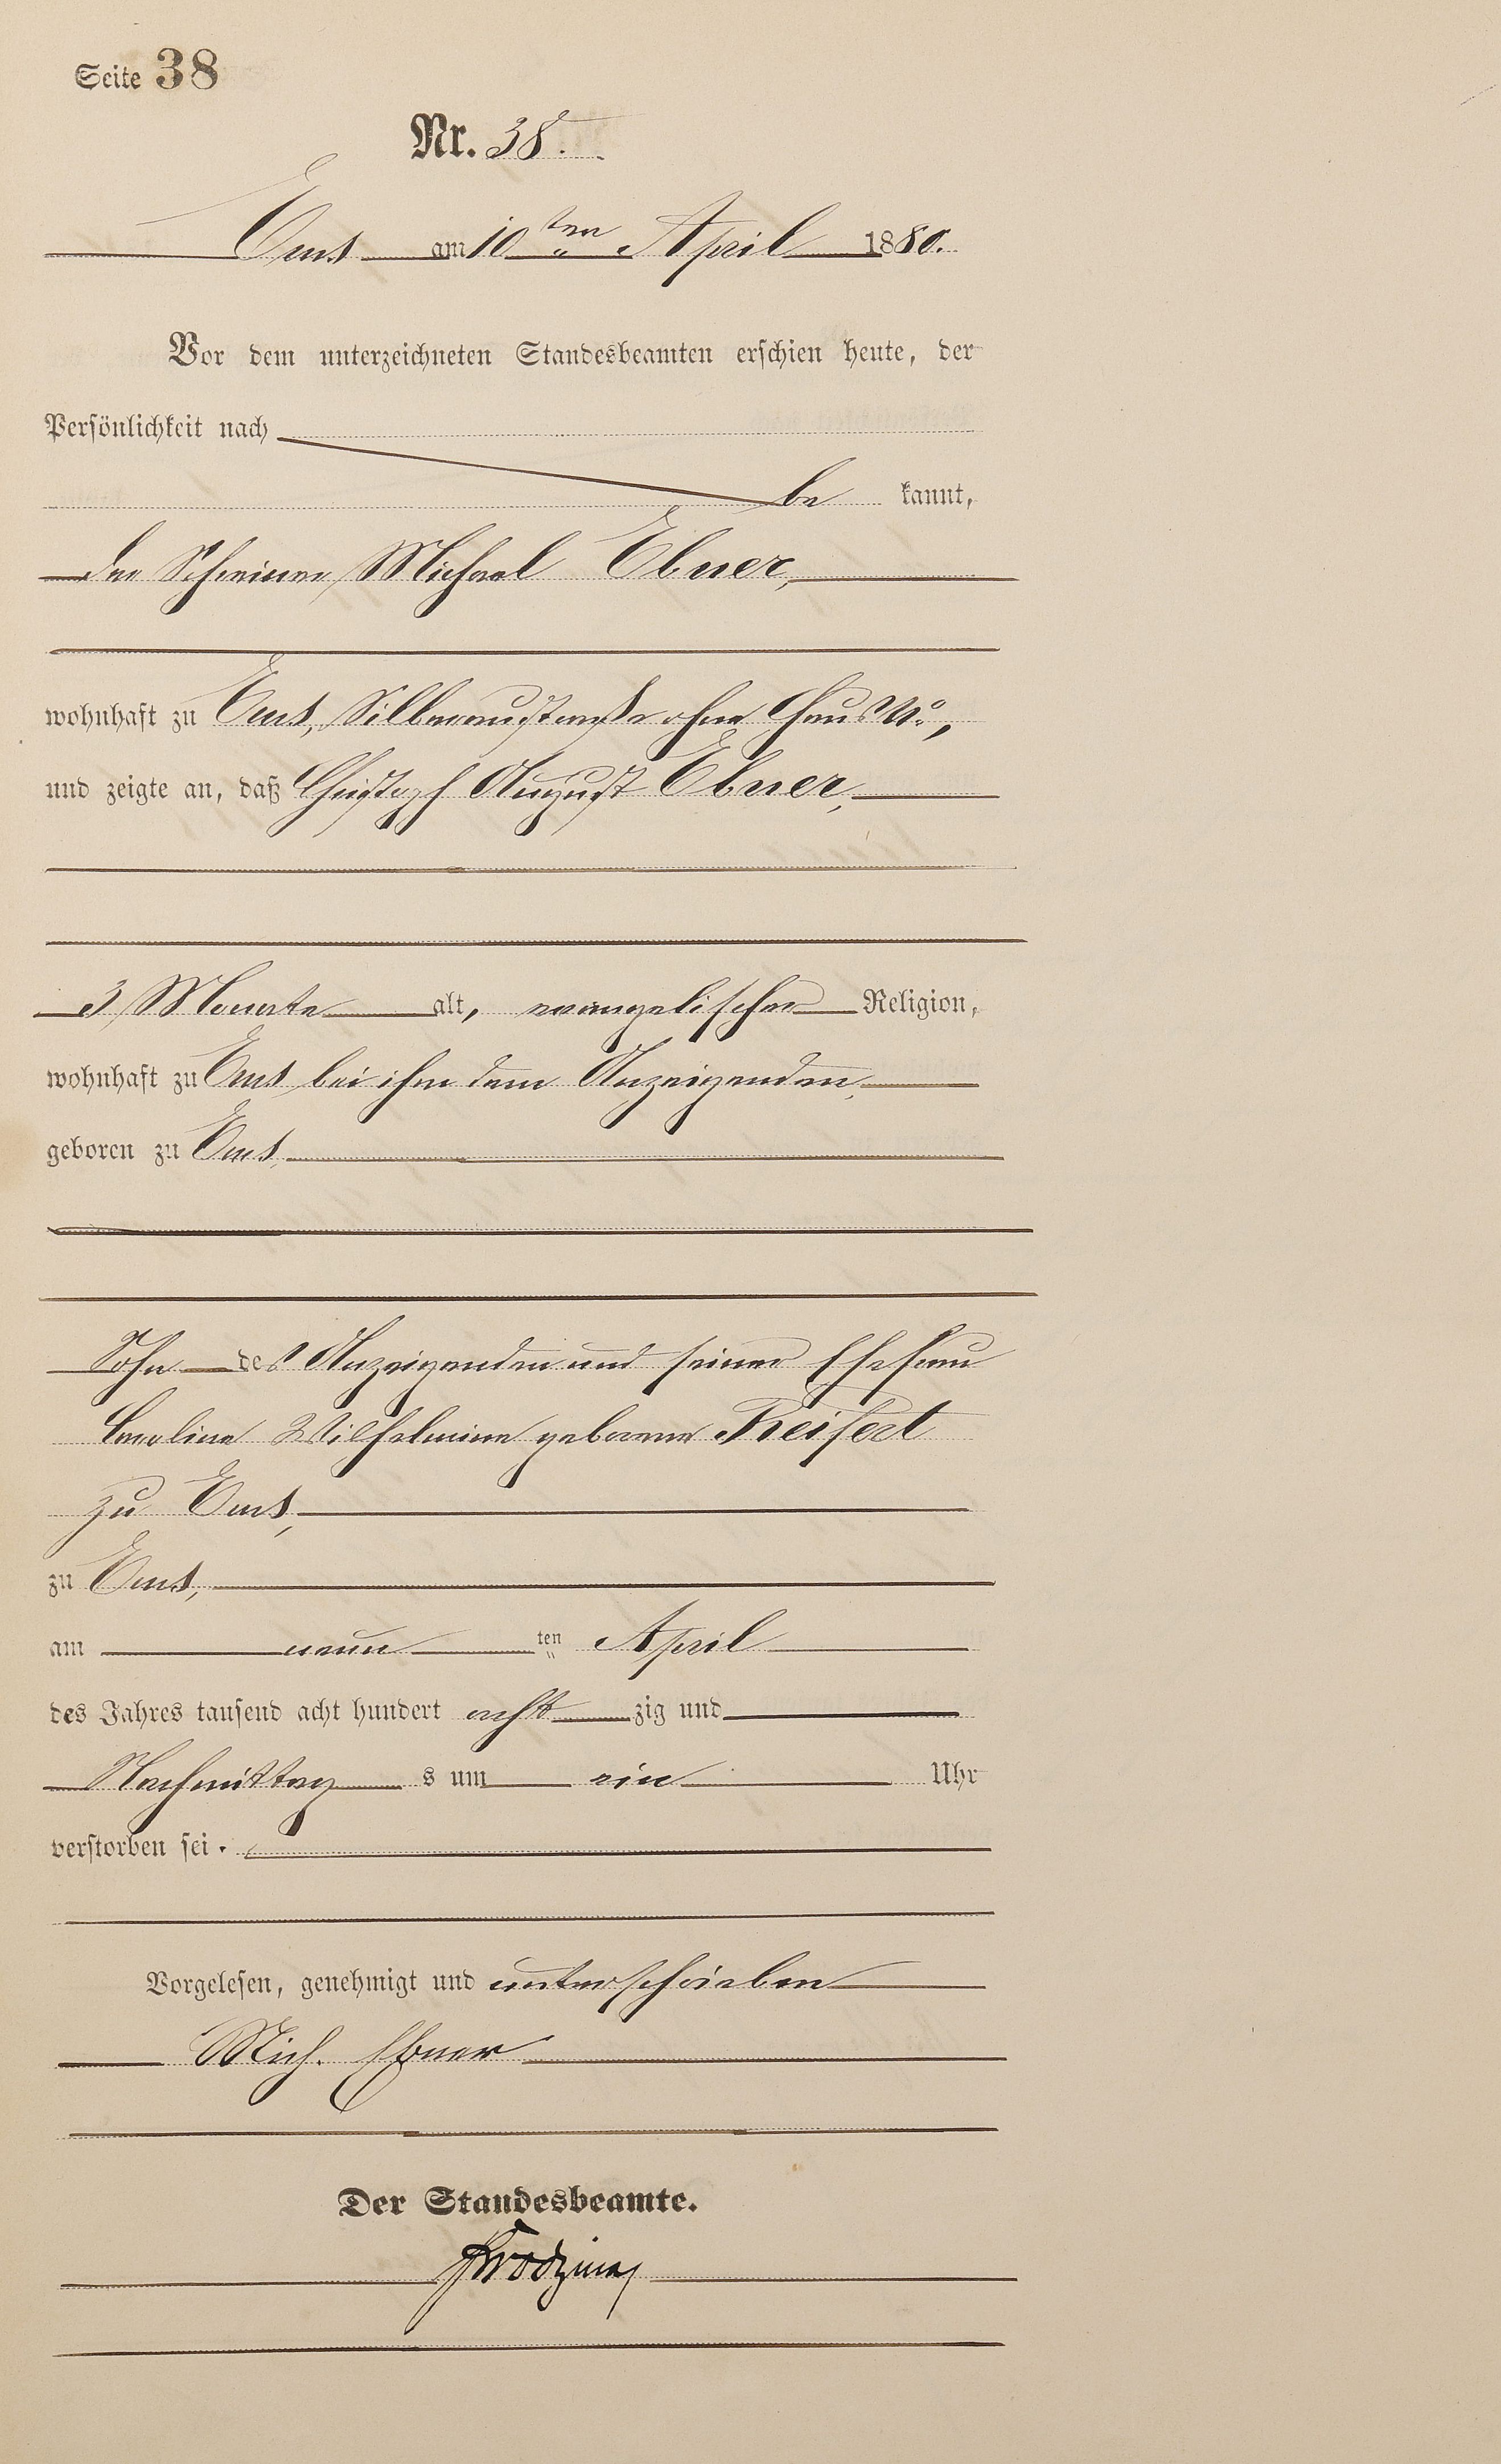 Seite 38
Nr. 38.
Ems am 10ten April 1880.
Vor dem unterzeichneten Standesbeamten erschien heute, der
Persönlichkeit nach
be kannt,
der Schreiner Michael Ebner,
wohnhaft zu Ems, Silberaustraße ohne Haus No,
und zeigte an, daß Christoph August Ebner,
3 Monate alt, evangelischer Religion,
wohnhaft zu Ems bei ihm dem Anzeigenden,
geboren zu Ems,
Sohn des Anzeigenden und seiner Ehefrau
Caroline Wilhelmine geborene Reifert
zu Ems,
zu Ems,
am neun ten April
des Jahres tausend acht hundert acht zig und
Nachmittag s um ein Uhr
verstorben sei.
Vorgelesen, genehmigt und unterschrieben
Mich. Ebner
Der Standesbeamte.